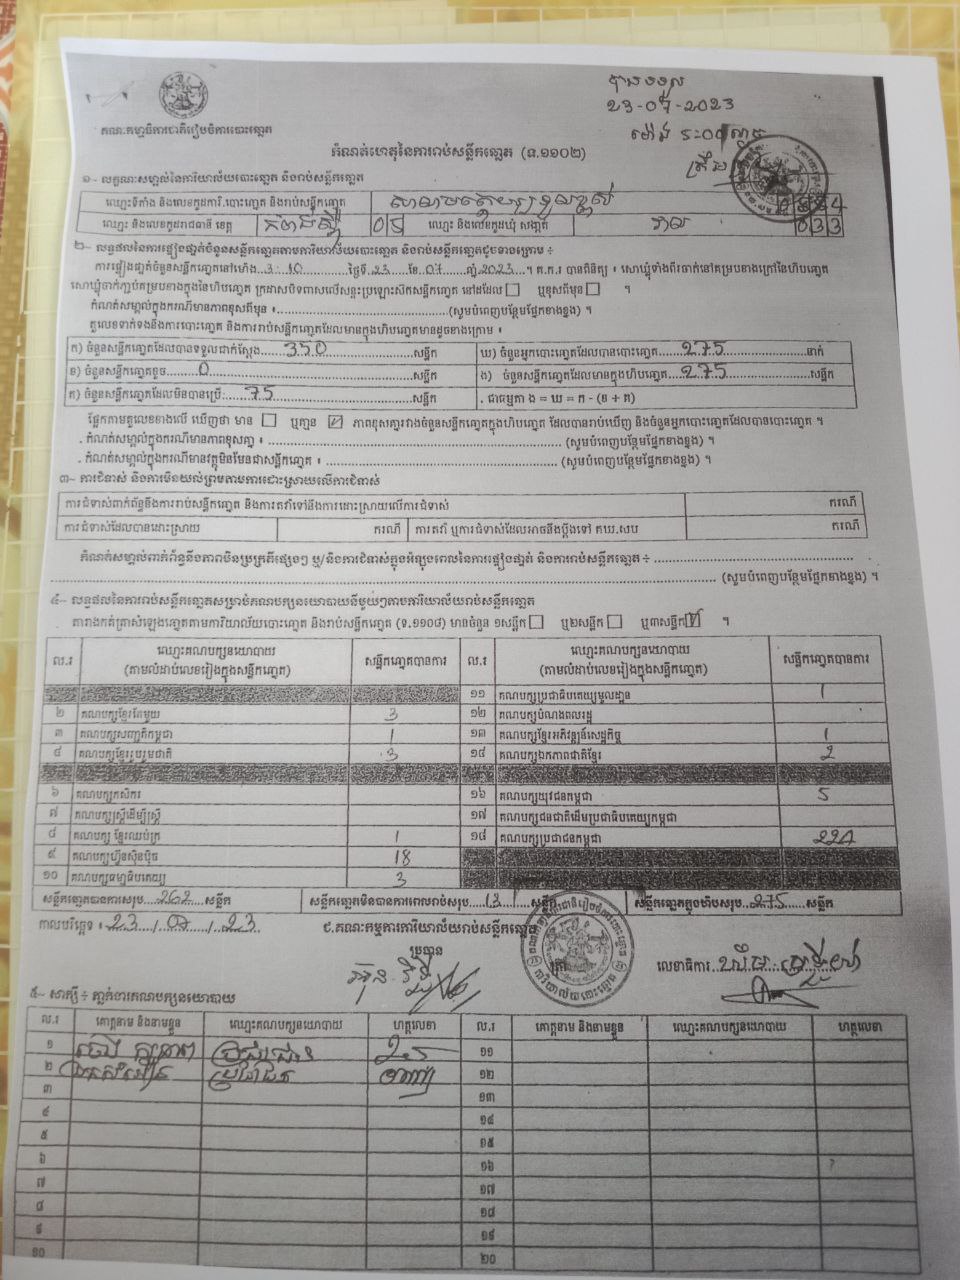 បានទទួល
23-07-2023
គណៈកម្មាធិការជាតិរៀបចំការបោះឆ្នោត
កំណត់ហេតុនៃការរាប់សន្លឹកឆ្នោត (ទ.១១០២)
១- លក្ខណៈសម្គាល់នៃការិយាល័យបោះឆ្នោត និងរាប់សន្លឹកឆ្នោត
ឈ្មោះទីតាំង និងលេខកូដការិ.បោះឆ្នោត និងរាប់សន្លឹកឆ្នោត
ឈ្មោះ និងលេខកូដរាជធានី ខេត្ត កំពង់ស្ពឺ 05 ឈ្មោះ និងលេខកូដឃុំ សង្កាត់ 033
២- លទ្ធផលនៃការផ្ទៀងផ្ទាត់ចំនួនសន្លឹកឆ្នោតតាមការិយាល័យបោះឆ្នោត និងរាប់សន្លឹកឆ្នោតដូចខាងក្រោម ៖
ការផ្ទៀងផ្ទាត់ចំនួនសន្លឹកឆ្នោតនៅម៉ោង 3:10 ថ្ងៃទី 23 ខែ 07 ឆ្នាំ 2023 ។ គ.ក.រ បានពិនិត្យ ៖ សោឃ្លុំទាំងពីរចាក់នៅគម្របខាងក្រៅនៃហិបឆ្នោត
សោឃ្លុំចាក់ភ្ជាប់គម្របខាងក្នុងនៃហិបឆ្នោត ក្រដាសបិទពាសលើសន្ទះប្រឡោះស៊កសន្លឹកឆ្នោត នៅដដែល ឬខុសពីមុន ។
កំណត់សម្គាល់ក្នុងករណីមានភាពខុសពីមុន ៖ (សូមបំពេញបន្ថែមផ្នែកខាងខ្នង) ។
តួលេខទាក់ទងនឹងការបោះឆ្នោត និងការរាប់សន្លឹកឆ្នោតដែលមានក្នុងហិបឆ្នោតមានដូចខាងក្រោម ៖
ក) ចំនួនសន្លឹកឆ្នោតដែលបានទទួលជាក់ស្តែង 350 សន្លឹក ឃ) ចំនួនអ្នកបោះឆ្នោតដែលបានបោះឆ្នោត 275 នាក់
ខ) ចំនួនសន្លឹកឆ្នោតខូច 0 សន្លឹក ង) ចំនួនសន្លឹកឆ្នោតដែលមានក្នុងហិបឆ្នោត 275 សន្លឹក
គ) ចំនួនសន្លឹកឆ្នោតដែលមិនបានប្រើ 75 សន្លឹក . ជាធម្មតា ង = ឃ = ក - (ខ + គ)
ផ្អែកតាមតួលេខខាងលើ ឃើញថា មាន ឬគ្មាន ✓ ភាពខុសគ្នារវាងចំនួនសន្លឹកឆ្នោតក្នុងហិបឆ្នោត ដែលបានរាប់ឃើញ និងចំនួនអ្នកបោះឆ្នោតដែលបានបោះឆ្នោត ។
. កំណត់សម្គាល់ក្នុងករណីមានភាពខុសគ្នា ៖ (សូមបំពេញបន្ថែមផ្នែកខាងខ្នង) ។
. កំណត់សម្គាល់ក្នុងករណីមានវត្ថុមិនមែនជាសន្លឹកឆ្នោត ៖ (សូមបំពេញបន្ថែមផ្នែកខាងខ្នង) ។
៣- ការជំទាស់ និងការមិនយល់ព្រមតាមការដោះស្រាយលើការជំទាស់
ការជំទាស់ពាក់ព័ន្ធនឹងការរាប់សន្លឹកឆ្នោត និងការតវ៉ាទៅនឹងការដោះស្រាយលើការជំទាស់ ករណី
ការជំទាស់ដែលបានដោះស្រាយ ករណី ការតវ៉ា ឬការជំទាស់ដែលអាចនឹងប្តឹងទៅ គឃ.សប ករណី
កំណត់សម្គាល់ពាក់ព័ន្ធនឹងភាពមិនប្រក្រតីផ្សេងៗ ឬ/និងការជំទាស់ក្នុងអំឡុងពេលនៃការផ្ទៀងផ្ទាត់ និងការរាប់សន្លឹកឆ្នោត ៖
(សូមបំពេញបន្ថែមផ្នែកខាងខ្នង) ។
៤- លទ្ធផលនៃការរាប់សន្លឹកឆ្នោតសម្រាប់គណបក្សនយោបាយនីមួយៗតាមការិយាល័យរាប់សន្លឹកឆ្នោត
តារាងកត់ត្រាសំឡេងឆ្នោតតាមការិយាល័យបោះឆ្នោត និងរាប់សន្លឹកឆ្នោត (ទ.១១០៨) មានចំនួន ១សន្លឹក ឬ២សន្លឹក ឬ៣សន្លឹក ✓ ។
ល.រ ឈ្មោះគណបក្សនយោបាយ (តាមលំដាប់លេខរៀងក្នុងសន្លឹកឆ្នោត) សន្លឹកឆ្នោតបានការ ល.រ ឈ្មោះគណបក្សនយោបាយ (តាមលំដាប់លេខរៀងក្នុងសន្លឹកឆ្នោត) សន្លឹកឆ្នោតបានការ
១១ គណបក្សប្រជាធិបតេយ្យមូលដ្ឋាន 1
២ គណបក្សខ្មែរតែមួយ 3 ១២ គណបក្សបំណងពលរដ្ឋ
៣ គណបក្សសញ្ជាតិកម្ពុជា 1 ១៣ គណបក្សខ្មែរអភិវឌ្ឍន៍សេដ្ឋកិច្ច 1
៤ គណបក្សខ្មែររួបរួមជាតិ 3 ១៤ គណបក្សឯកភាពជាតិខ្មែរ 2
៦ គណបក្សកសិករ ១៦ គណបក្សយុវជនកម្ពុជា 5
៧ គណបក្សស្ត្រីដើម្បីស្ត្រី ១៧ គណបក្សជនជាតិដើមប្រជាធិបតេយ្យកម្ពុជា
៨ គណបក្ស ខ្មែរឈប់ក្រ 1 ១៨ គណបក្សប្រជាជនកម្ពុជា 224
៩ គណបក្សហ្វ៊ុនស៊ិនប៉ិច 18
១០ គណបក្សធម្មាធិបតេយ្យ 3
សន្លឹកឆ្នោតបានការសរុប 262 សន្លឹក សន្លឹកឆ្នោតមិនបានការពេលរាប់សរុប 13 សន្លឹក សន្លឹកឆ្នោតក្នុងហិបសរុប 275 សន្លឹក
កាលបរិច្ឆេទ ៖ 23 / 07 / 23 ជ.គណៈកម្មការការិយាល័យរាប់សន្លឹកឆ្នោត
ប្រធាន លេខាធិការ
៥- សាក្សី ៖ ភ្នាក់ងារគណបក្សនយោបាយ
ល.រ គោត្តនាម និងនាមខ្លួន ឈ្មោះគណបក្សនយោបាយ ហត្ថលេខា ល.រ គោត្តនាម និងនាមខ្លួន ឈ្មោះគណបក្សនយោបាយ ហត្ថលេខា
១ ១១
២ ១២
៣ ១៣
៤ ១៤
៥ ១៥
៦ ១៦
៧ ១៧
៨ ១៨
៩ ១៩
១០ ២០